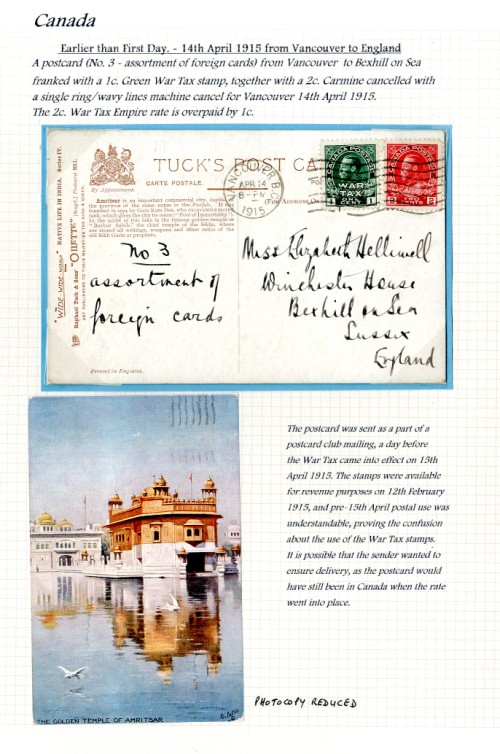 Canada
Earlier than First Day. - 14th April 1915 from Vancouver to England
A postcard (No. 3 - assortment of foreign cards) from Vancouver to Bexhill on Sea
franked with a 1c. Green War Tax stamp, together with a 2c. Carmine cancelled with
a single ring/wavy lines machine cancel for Vancouver 14th April 1915.
The 2c. War Tax Empire rate is overpaid by 1c.
TUCK'S POST CA
By Appointment.
CARTE POSTALE.
(For Address On
VANCOUVER, B.C.
APR 14
8 - PM
1915
CANADA POSTAGE
WAR
TAX
1 1
CANADA POSTAGE
2 2
"WIDE-WIDE-WORLD" NATIVE LIFE IN INDIA. Series IV.
Raphael Tuck & Sons' "OILETTE"
Amritsar is an important commercial city,
the province of the same name in the Punjab.
No 3
assortment of
foreign cards
Miss Elizabeth Helliwell
Winchester House
Bexhill on Sea
Sussex
England
Printed in England.
The postcard was sent as a part of a
postcard club mailing, a day before
the War Tax came into effect on 15th
April 1915. The stamps were available
for revenue purposes on 12th February
1915, and pre-15th April postal use was
understandable, proving the confusion
about the use of the War Tax stamps.
It is possible that the sender wanted to
ensure delivery, as the postcard would
have still been in Canada when the rate
went into place.
THE GOLDEN TEMPLE OF AMRITSAR
PHOTOCOPY REDUCED